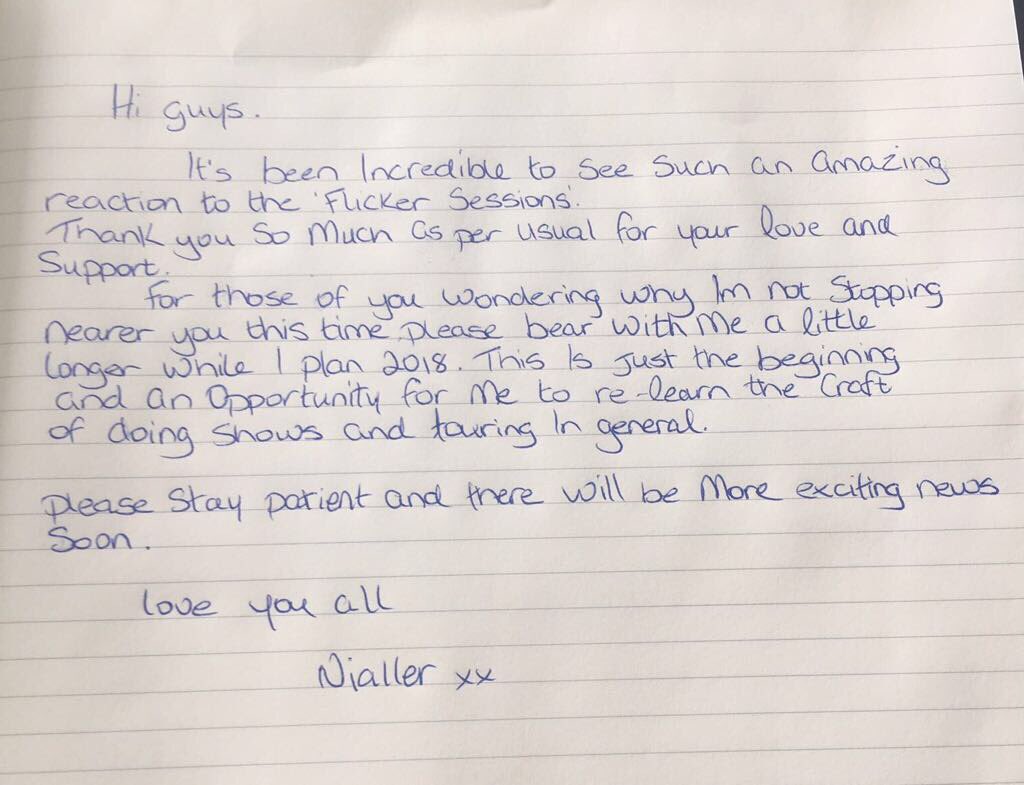 Hi guys.
It's been Incredible to See Such an Amazing
reaction to the 'Flicker Sessions'.
Thank you So Much as per usual for your love and
Support.
For those of you wondering why Im not Stopping
nearer you this time please bear with Me a little
longer while I plan 2018. This Is just the beginning
and an Opportunity for Me to re-learn the Craft
of doing Shows and touring In general.
please Stay patient and there will be More exciting news
Soon.
love you all
Nialler xx